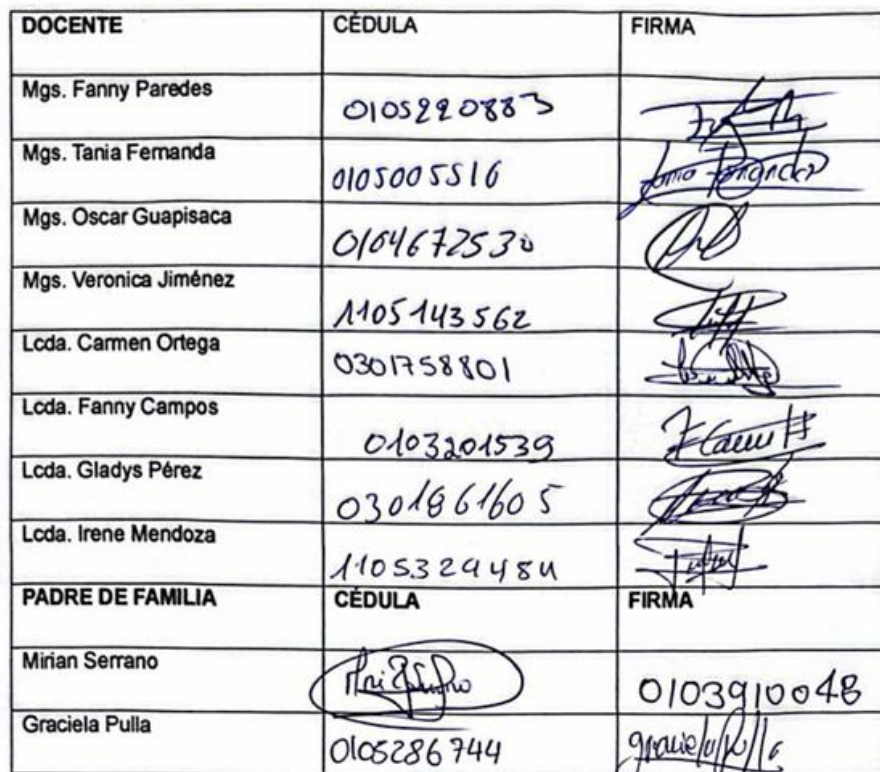 DOCENTE CÉDULA FIRMA
Mgs. Fanny Paredes 0105220883
Mgs. Tania Fernanda 0105005516
Mgs. Oscar Guapisaca 0104672530
Mgs. Veronica Jiménez 1105143562
Lcda. Carmen Ortega 0301758801
Lcda. Fanny Campos 0103201539
Lcda. Gladys Pérez 0301861605
Lcda. Irene Mendoza 1105329484
PADRE DE FAMILIA CÉDULA FIRMA
Mirian Serrano 0103910048
Graciela Pulla 0105286744